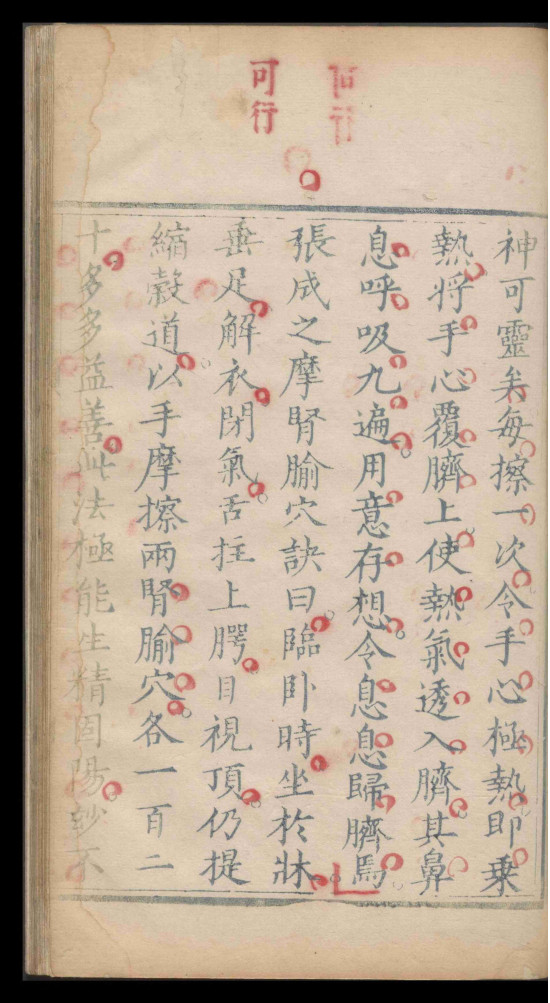 可行
神可靈矣每擦一次令手心極熱即乗
熱将手心覆臍上使熱氣透入臍其鼻
息呼吸九遍用意存想令息息歸臍焉
張成之摩腎腧穴訣曰臨卧時坐於牀
垂足解衣閉氣舌拄上腭目視頂仍提
縮穀道以手摩擦兩腎腧穴各一百二
十多多益善此法極能生精固陽妙不